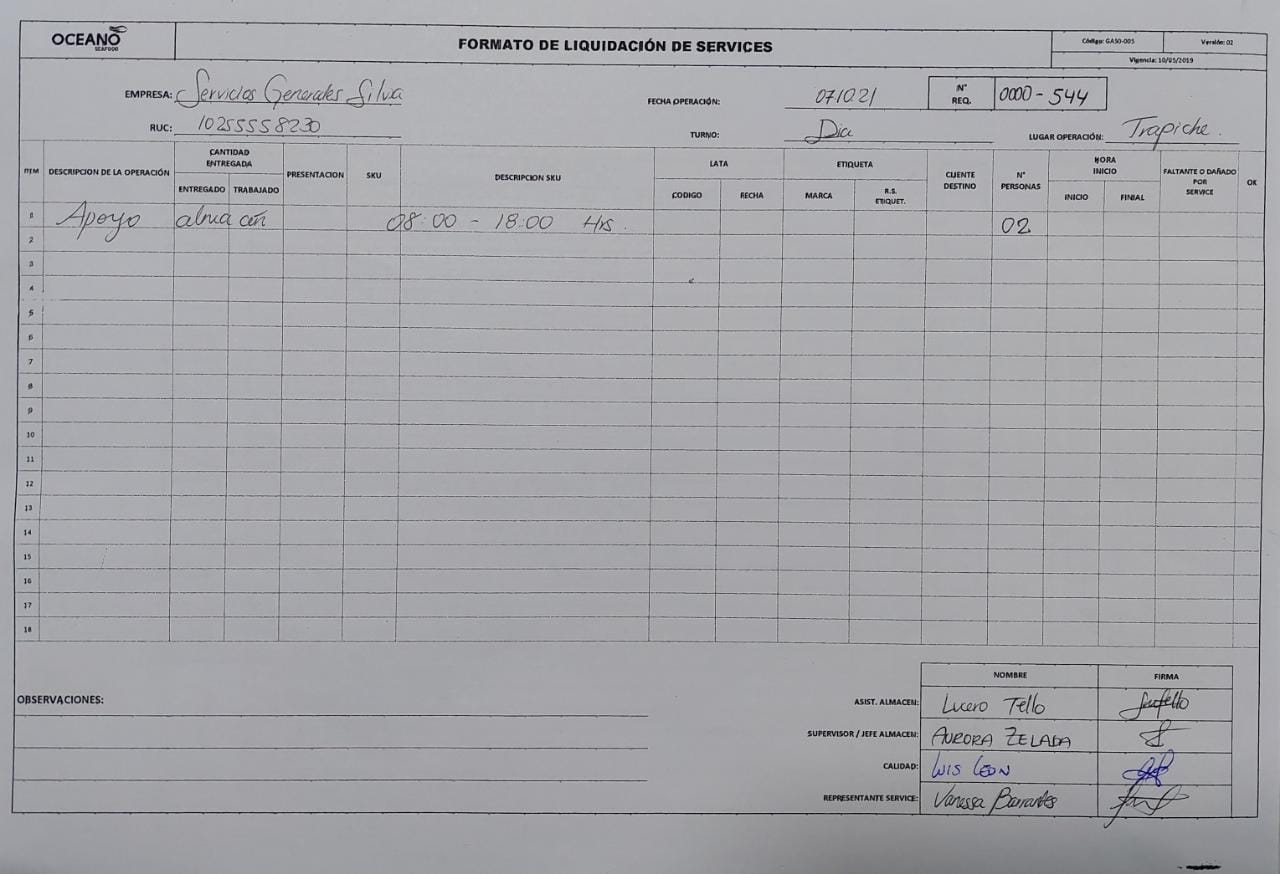 OCEANO
SEAFOOD
FORMATO DE LIQUIDACIÓN DE SERVICES
Código: GASO-005 Versión: 02
Vigencia: 10/05/2019
EMPRESA: Servicios Generales Silva
FECHA OPERACIÓN: 07.10.21
N° REQ. 0000-544
RUC: 10255558230
TURNO: Dia
LUGAR OPERACIÓN: Trapiche.
ITEM DESCRIPCION DE LA OPERACIÓN CANTIDAD ENTREGADA PRESENTACION SKU DESCRIPCION SKU LATA ETIQUETA CLIENTE DESTINO N° PERSONAS HORA INICIO FALTANTE O DAÑADO POR SERVICE OK
ENTREGADO TRABAJADO CODIGO FECHA MARCA R.S. ETIQUET. INICIO FINIAL
1 Apoyo almacén 08:00 - 18:00 Hrs. 02
2
3
4
5
6
7
8
9
10
11
12
13
14
15
16
17
18
NOMBRE FIRMA
OBSERVACIONES:
ASIST. ALMACEN: Lucero Tello
SUPERVISOR / JEFE ALMACEN: AURORA ZELADA
CALIDAD: LUIS LEON
REPRESENTANTE SERVICE: Vanessa Barrantes